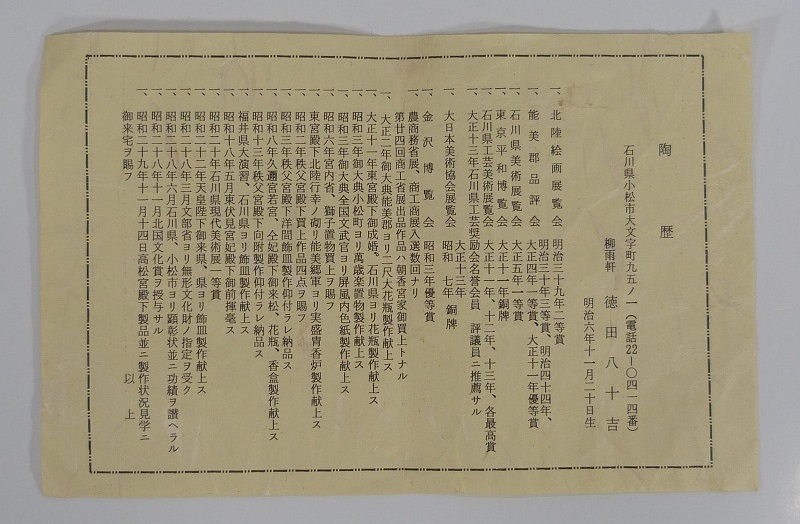 陶歴
石川県小松市大文字町九五ノ一(電話22-〇四一四番)
柳雨軒 徳田八十吉
明治六年十一月二十日生
一、北陸絵画展覧会 明治三十九年二等賞
明治三十年三等賞、明治四十四年、
一、能美郡品評会 大正四年一等賞、大正十一年優等賞
一、石川県美術展覧会 大正五年一等賞
一、東京平和博覧会 大正十一年銅牌
一、石川県工芸美術展覧会 大正十一年、十二年、十三年、各最高賞
一、大正十三年石川県工芸奨励会名誉会員、評議員ニ推薦サル
大正十三年
一、大日本美術協会展覧会 昭和七年 銅牌
一、金沢博覧会 昭和三年優等賞
一、農商務省展、商工商展入選数回ナリ
第廿四回商工省展出品作品ハ朝香宮家御買上トナル
一、大正二年御大典能美郡ヨリ二尺大花瓶製作献上ス
一、大正十一年東宮殿下御成婚。石川県ヨリ花瓶製作献上ス
一、昭和三年御大典小松町ヨリ萬歳楽置物製作献上ス
一、昭和三年御大典全国文武官ヨリ屏風内色紙製作献上ス
一、昭和六年宮内省、獅子置物買上ヲ賜フ
一、東宮殿下北陸行幸ノ砌リ能美郷軍ヨリ実盛冑香炉製作献上ス
一、昭和二年秩父宮殿下買上作品四点ヲ賜フ
一、昭和三年秩父宮殿下洋間飾皿製作仰付ラレ納品ス
一、昭和八年久邇宮若宮、仝妃殿下御来松、花瓶、香盒製作献上ス
一、昭和十三年秩父宮殿下向附製作仰付ラレ納品ス
一、福井県大演習、石川県ヨリ飾皿製作献上ス
一、昭和十八年五月東伏見宮妃殿下御前揮毫ス
一、昭和二十年石川県現代美術展一等賞
一、昭和二十二年天皇陛下御来県、県ヨリ飾皿製作献上ス
一、昭和二十八年三月文部省ヨリ無形文化財ノ指定ヲ受ク
一、昭和二十八年六月石川県、小松市ヨリ顕彰状並ニ功績ヲ讃ヘラル
一、昭和二十八年十一月北国文化賞ヲ授与サル
一、昭和二十九年十一月十四日高松宮殿下製品並ニ製作状況見学ニ
御来宅ヲ賜フ 以上